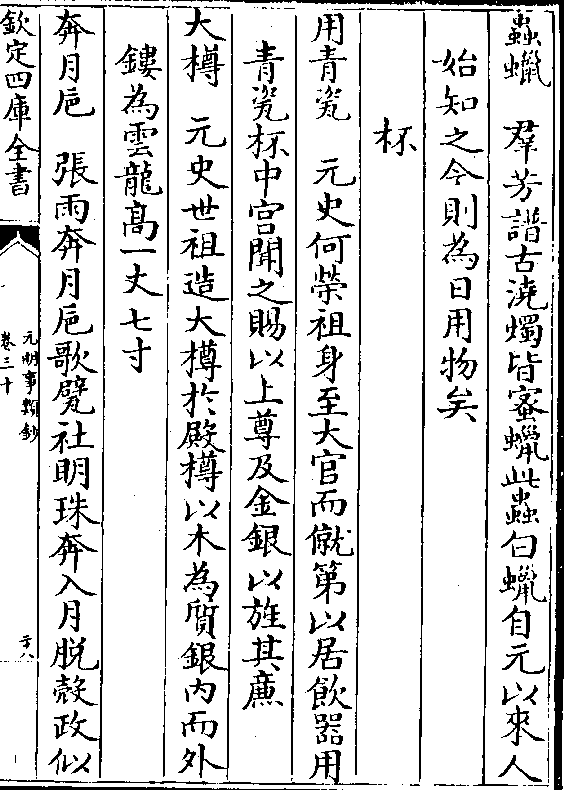 蟲蠟　羣芳譜古澆燭皆蜜蠟此蟲白蠟自元以來人
始知之今則為日用物矣
杯
用青瓷　元史何榮祖身至大官而僦第以居飲器用
青瓷杯中宫聞之賜以上尊及金銀以旌其廉
大樽　元史世祖造大樽於殿樽以木為質銀内而外
鏤為雲龍高一丈七寸
奔月巵　張雨奔月巵歌甓社明珠奔入月脱殻政似
欽定四庫全書
元明事類鈔
卷三十
二十八